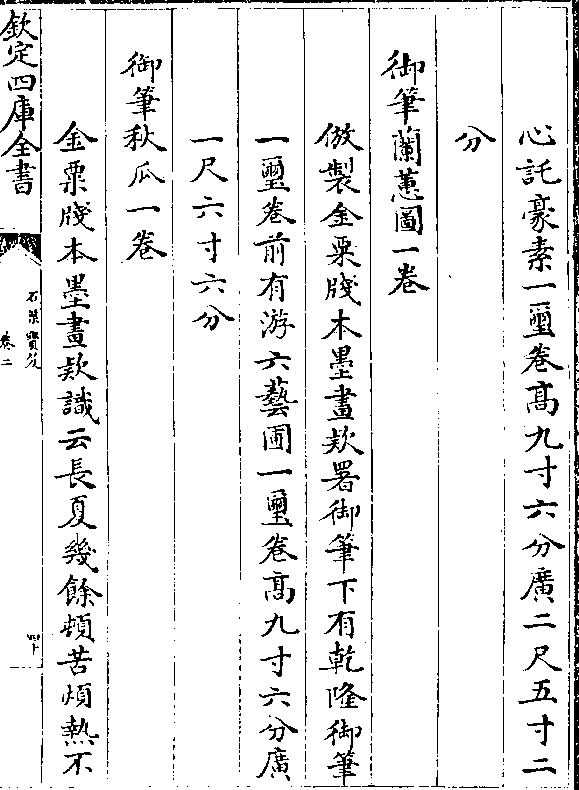 心託豪素一璽卷髙九寸六分廣二尺五寸二
分
御筆蘭蕙圖一卷
倣製金粟牋本墨畫欵署御筆下有乾隆御筆
一璽卷前有游六藝圃一璽卷髙九寸六分廣
一尺六寸六分
御筆秋瓜一卷
金粟牋本墨畫欵識云長夏幾餘頓苦煩熱不
欽定四庫全書
石渠寳笈
卷二
四十